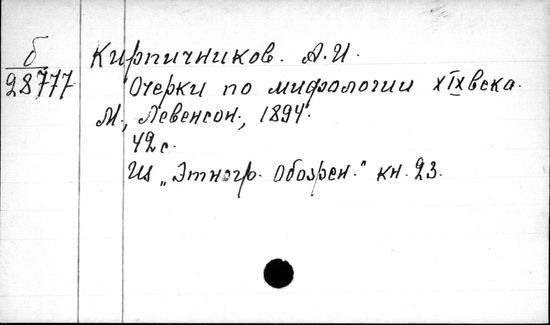 б
28777
Кирпичников. А.И.
Очерки по мифологии XIX века.
М., Левенсон, 1894.
42 с.
Из „Этногр. Обозрен." кн. 23.